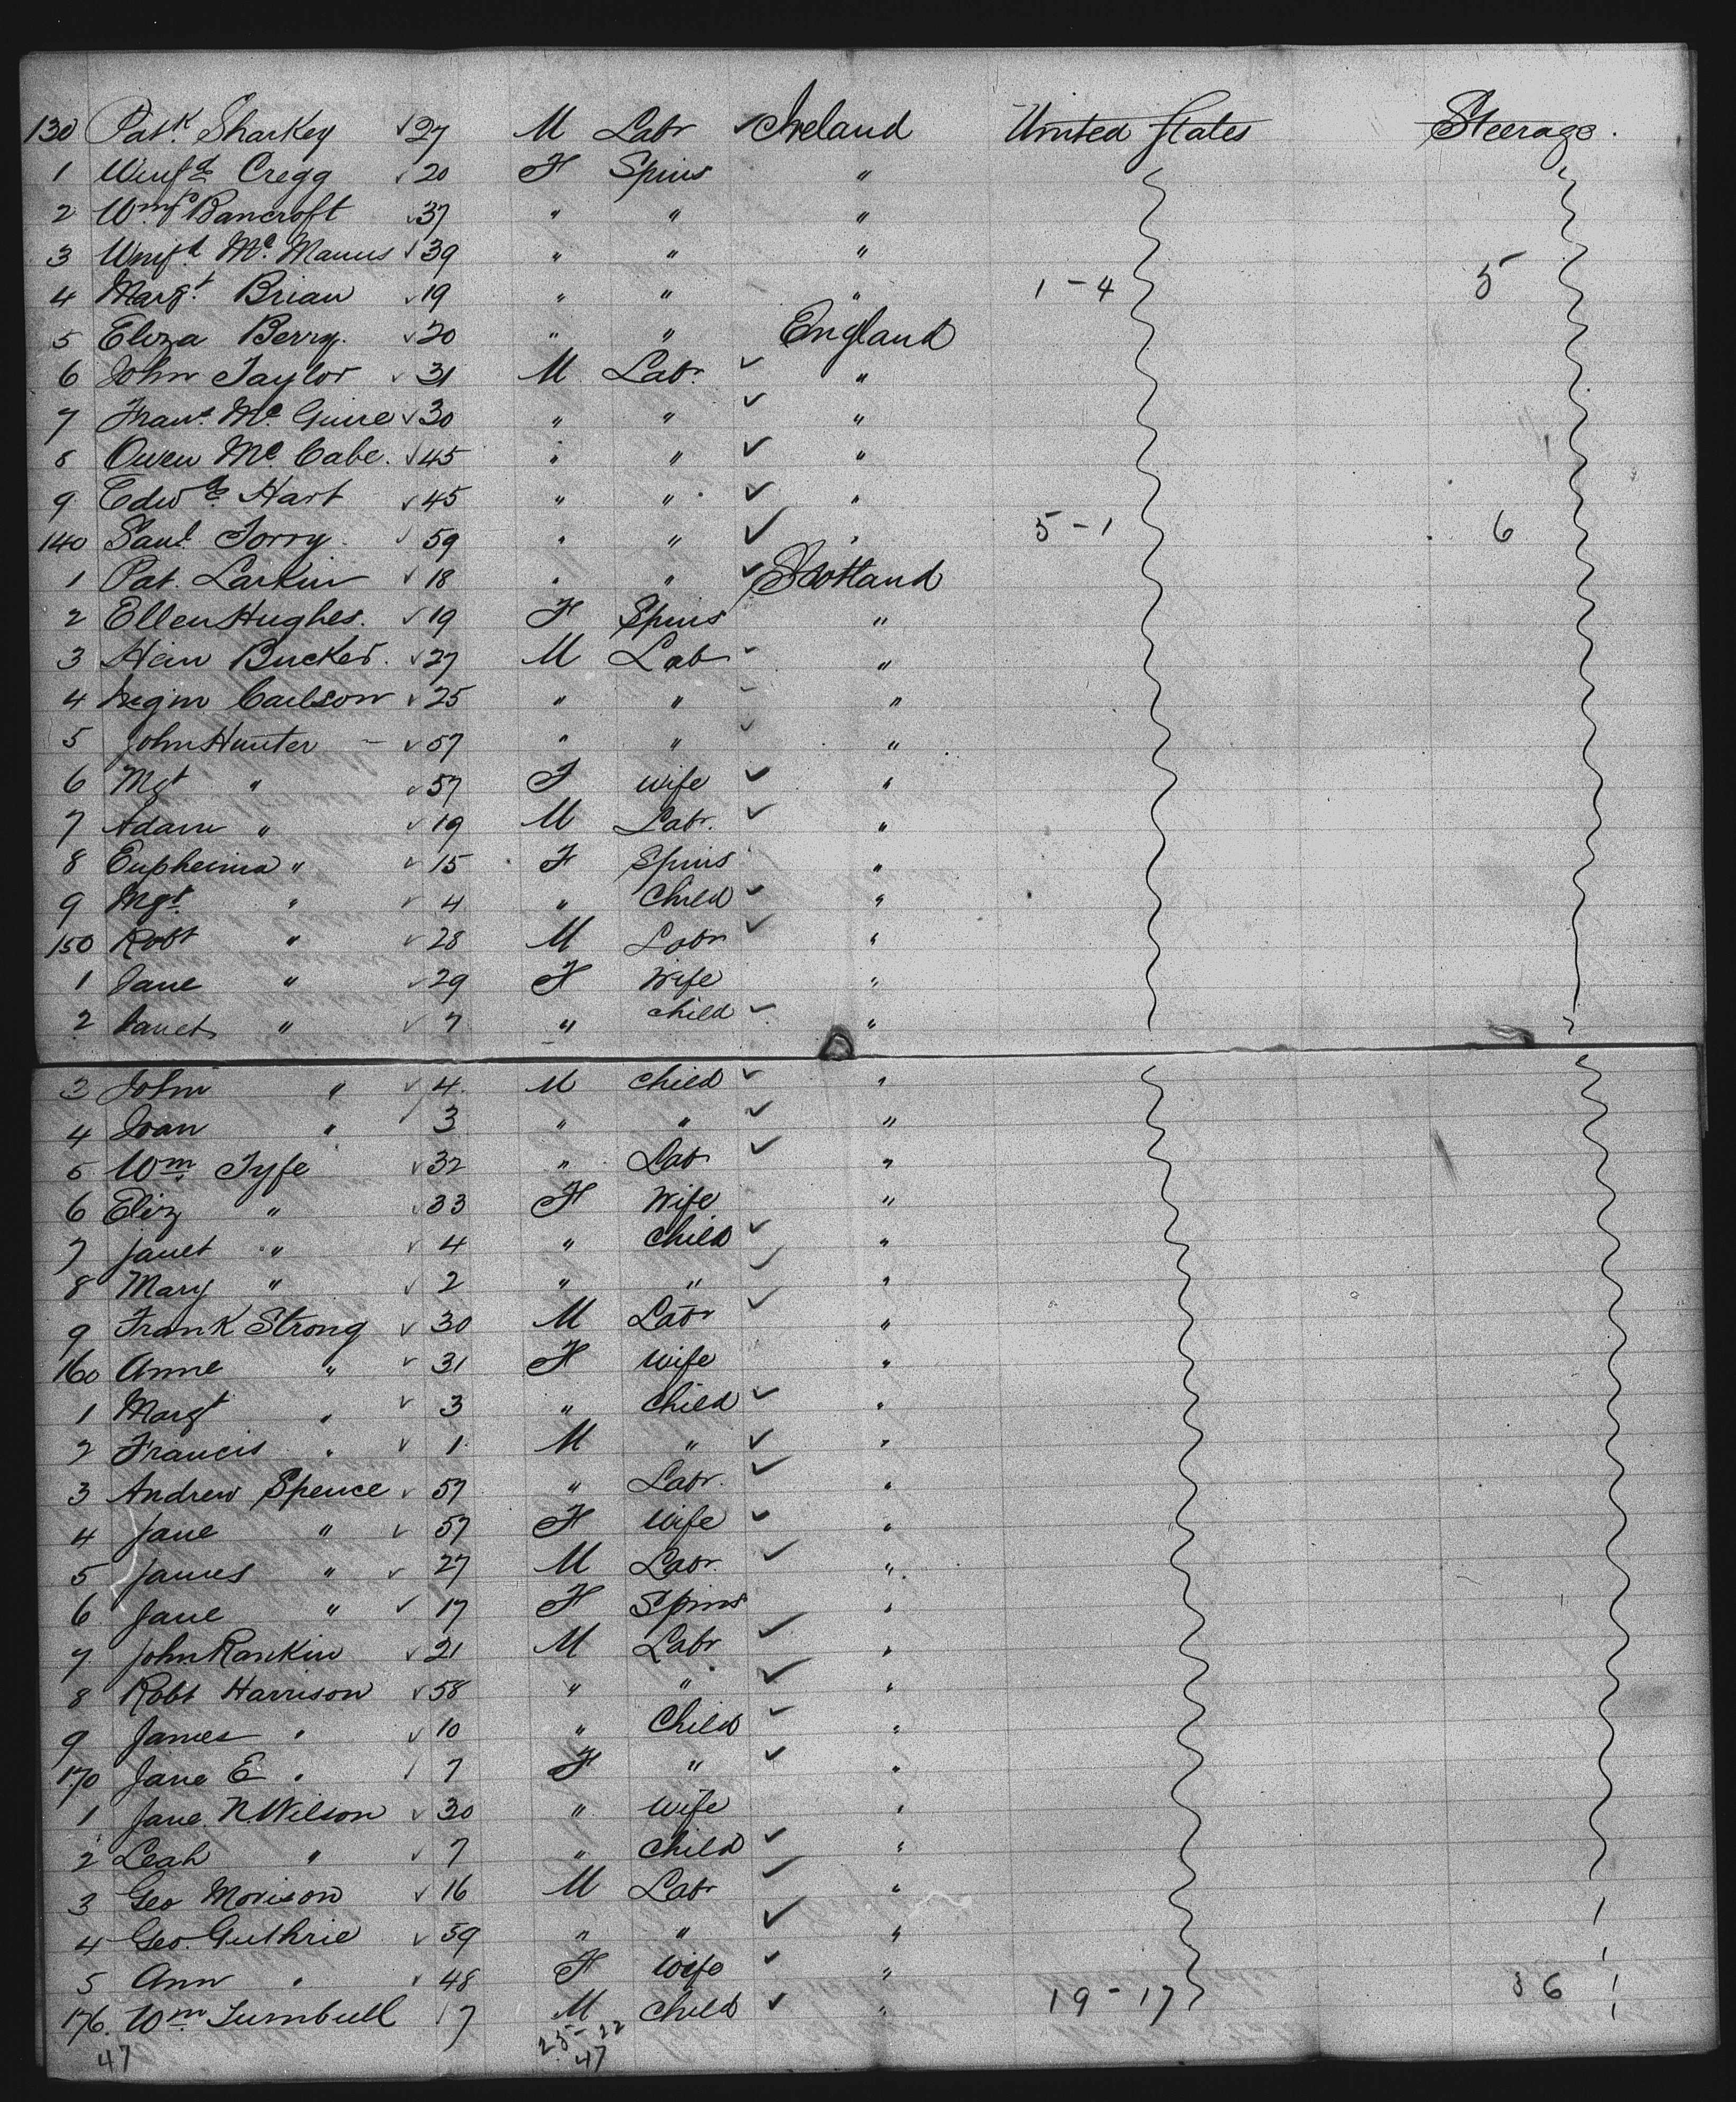 130 Patk Sharkey 27 M Labr Ireland United States Steerage.
1 Winfd Cregg 20 F Spins "
2 Bancroft 37 " " "
3 Winfd Mc Manus 39 " " "
4 Margt Brian 19 " " " 1-4 5
5 Eliza Berry. 20 " " England
6 John Taylor 31 M Labr "
7 Frans Mc Guire 30 " " "
8 Owen Mc Cabe. 45 " " "
9 Edwd Hart 45 " " "
140 Saml Torry 59 " " " 5-1 6
1 Pat. Larkin 18 " " Scotland
2 Ellen Hughes. 19 F Spins "
3 Bucker. 27 M Lab "
4 Carlson 25 " " "
5 John Hunter 57 " " "
6 Mgt " 57 F wife "
7 Adam " 19 M Labr. "
8 Euphemia " 15 F Spins "
9 Mgt " 4 " Child "
150 Robt " 28 M Labr "
1 Jane " 29 F Wife "
2 Janet " 7 " child "
3 John " 4 M child "
4 Joan " 3 " " "
5 Wm Fyfe 32 " Lab "
6 Eliz " 33 F Wife "
7 Janet " 4 " Child "
8 Mary " 2 " " "
9 Frank Strong 30 M Labr "
160 Anne " 31 F Wife "
1 Margt " 3 " Child "
2 Francis " 1 M " "
3 Andrew Spence 57 " Labr. "
4 Jane " 57 F Wife "
5 James " 27 M Labr. "
6 Jane " 17 F Spins "
7 John Rankin 21 M Labr "
8 Robt Harrison 58 " " "
9 James " 10 " Child "
170 Jane E " 7 F " "
1 Jane N. Wilson 30 " Wife "
2 Leah " 7 " Child "
3 Geo Morison 16 M Labr "
4 Geo. Guthrie 59 " " "
5 Ann " 48 F Wife "
176. Wm Turnbull 7 M Child " 19-17 36
47 25-22
47